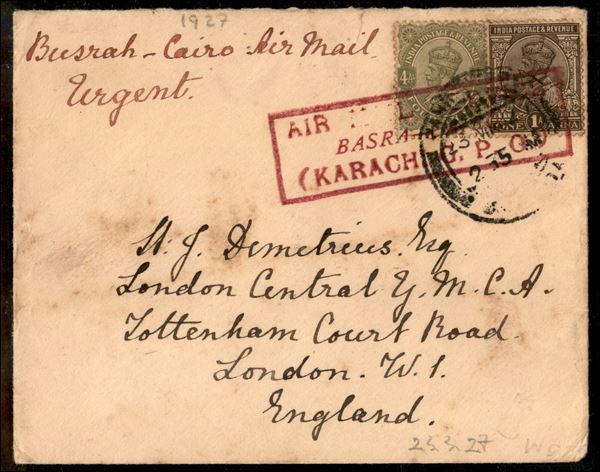 1927
Busrah - Cairo Air Mail.
Urgent.
INDIA POSTAGE & REVENUE
4 As
INDIA POSTAGE & REVENUE
1A
ONE
AIR
BASRA
(KARACHI G. P. O.)
23
2.15
H. J. Demetrius. Esq.
London Central Y. M. C. A.
Tottenham Court Road.
London. W. 1.
England.
23.3.27